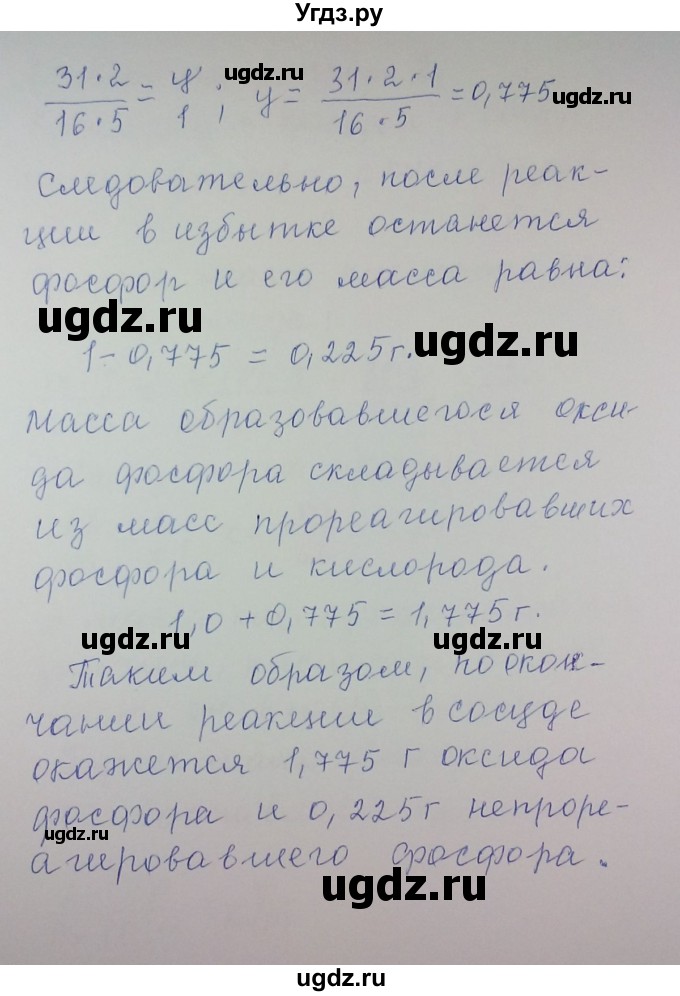 Угдз.ру
31·2/16·5 = y/1; y = 31·2·1/16·5 = 0,775
ugdz.ru
ugdz.ru
Следовательно, после реак-
ции в избытке останется
фосфор и его масса равна:
ugdz.ru
ugdz.ru
1 - 0,775 = 0,225 г.
Масса образовавшегося окси-
да фосфора складывается
из масс прореагировавших
фосфора и кислорода.
1,0 + 0,775 = 1,775 г.
ugdz.ru
ugdz.ru
Таким образом, по окон-
чании реакции в сосуде
окажется 1,775 г оксида
фосфора и 0,225 г непроре-
ugdz.ru
агировавшего фосфора.
ugdz.ru
ugdz.ru